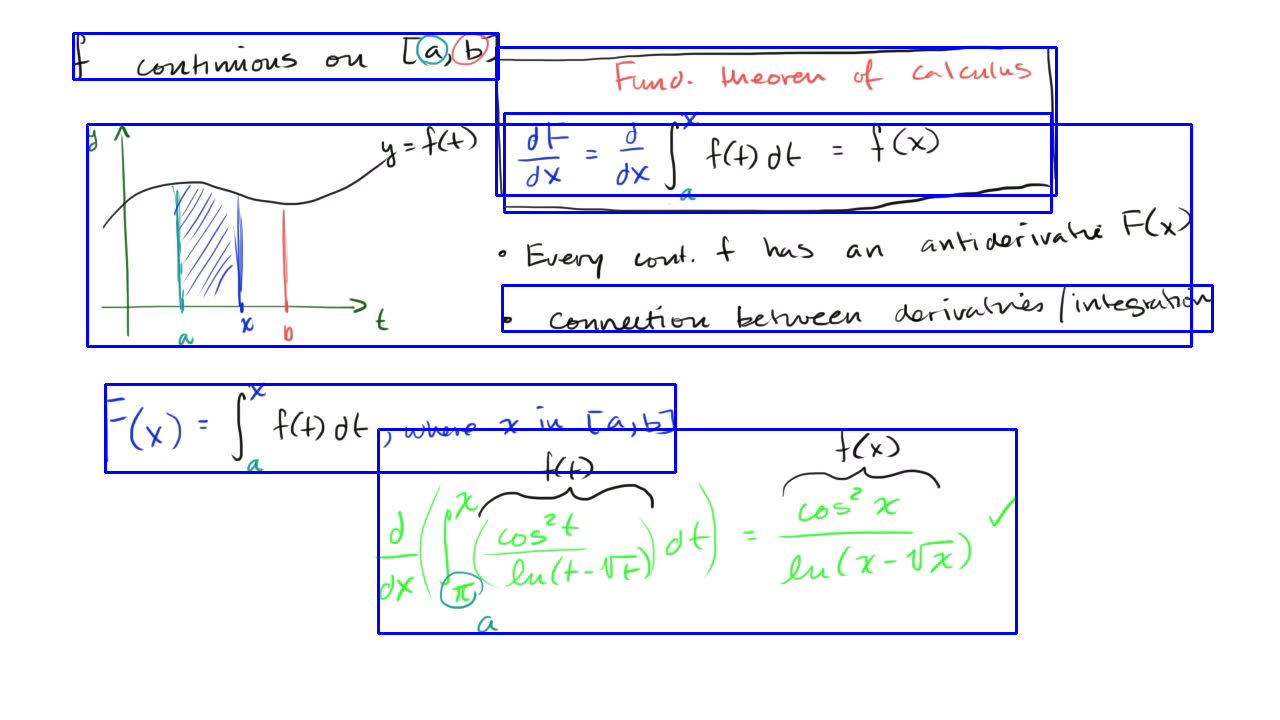 f continuous on [a,b]
Fund. theorem of calculus
dF/dx = d/dx ∫_a^x f(t) dt = f(x)
y
y = f(t)
a x b t
• Every cont. f has an antiderivative F(x)
• connection between derivatives / integration
F(x) = ∫_a^x f(t) dt, where x in [a,b]
f(t) f(x)
d/dx (∫_π^x (cos²t / ln(t-√t)) dt) = cos²x / ln(x-√x) ✓
a